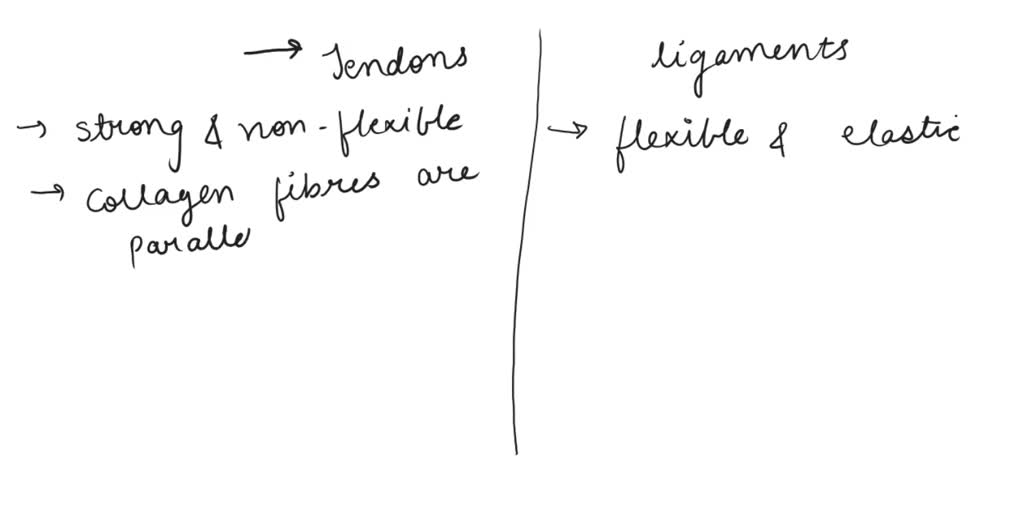 → Tendons
→ strong & non-flexible
→ collagen fibres are
paralle
ligaments
→ flexible & elastic